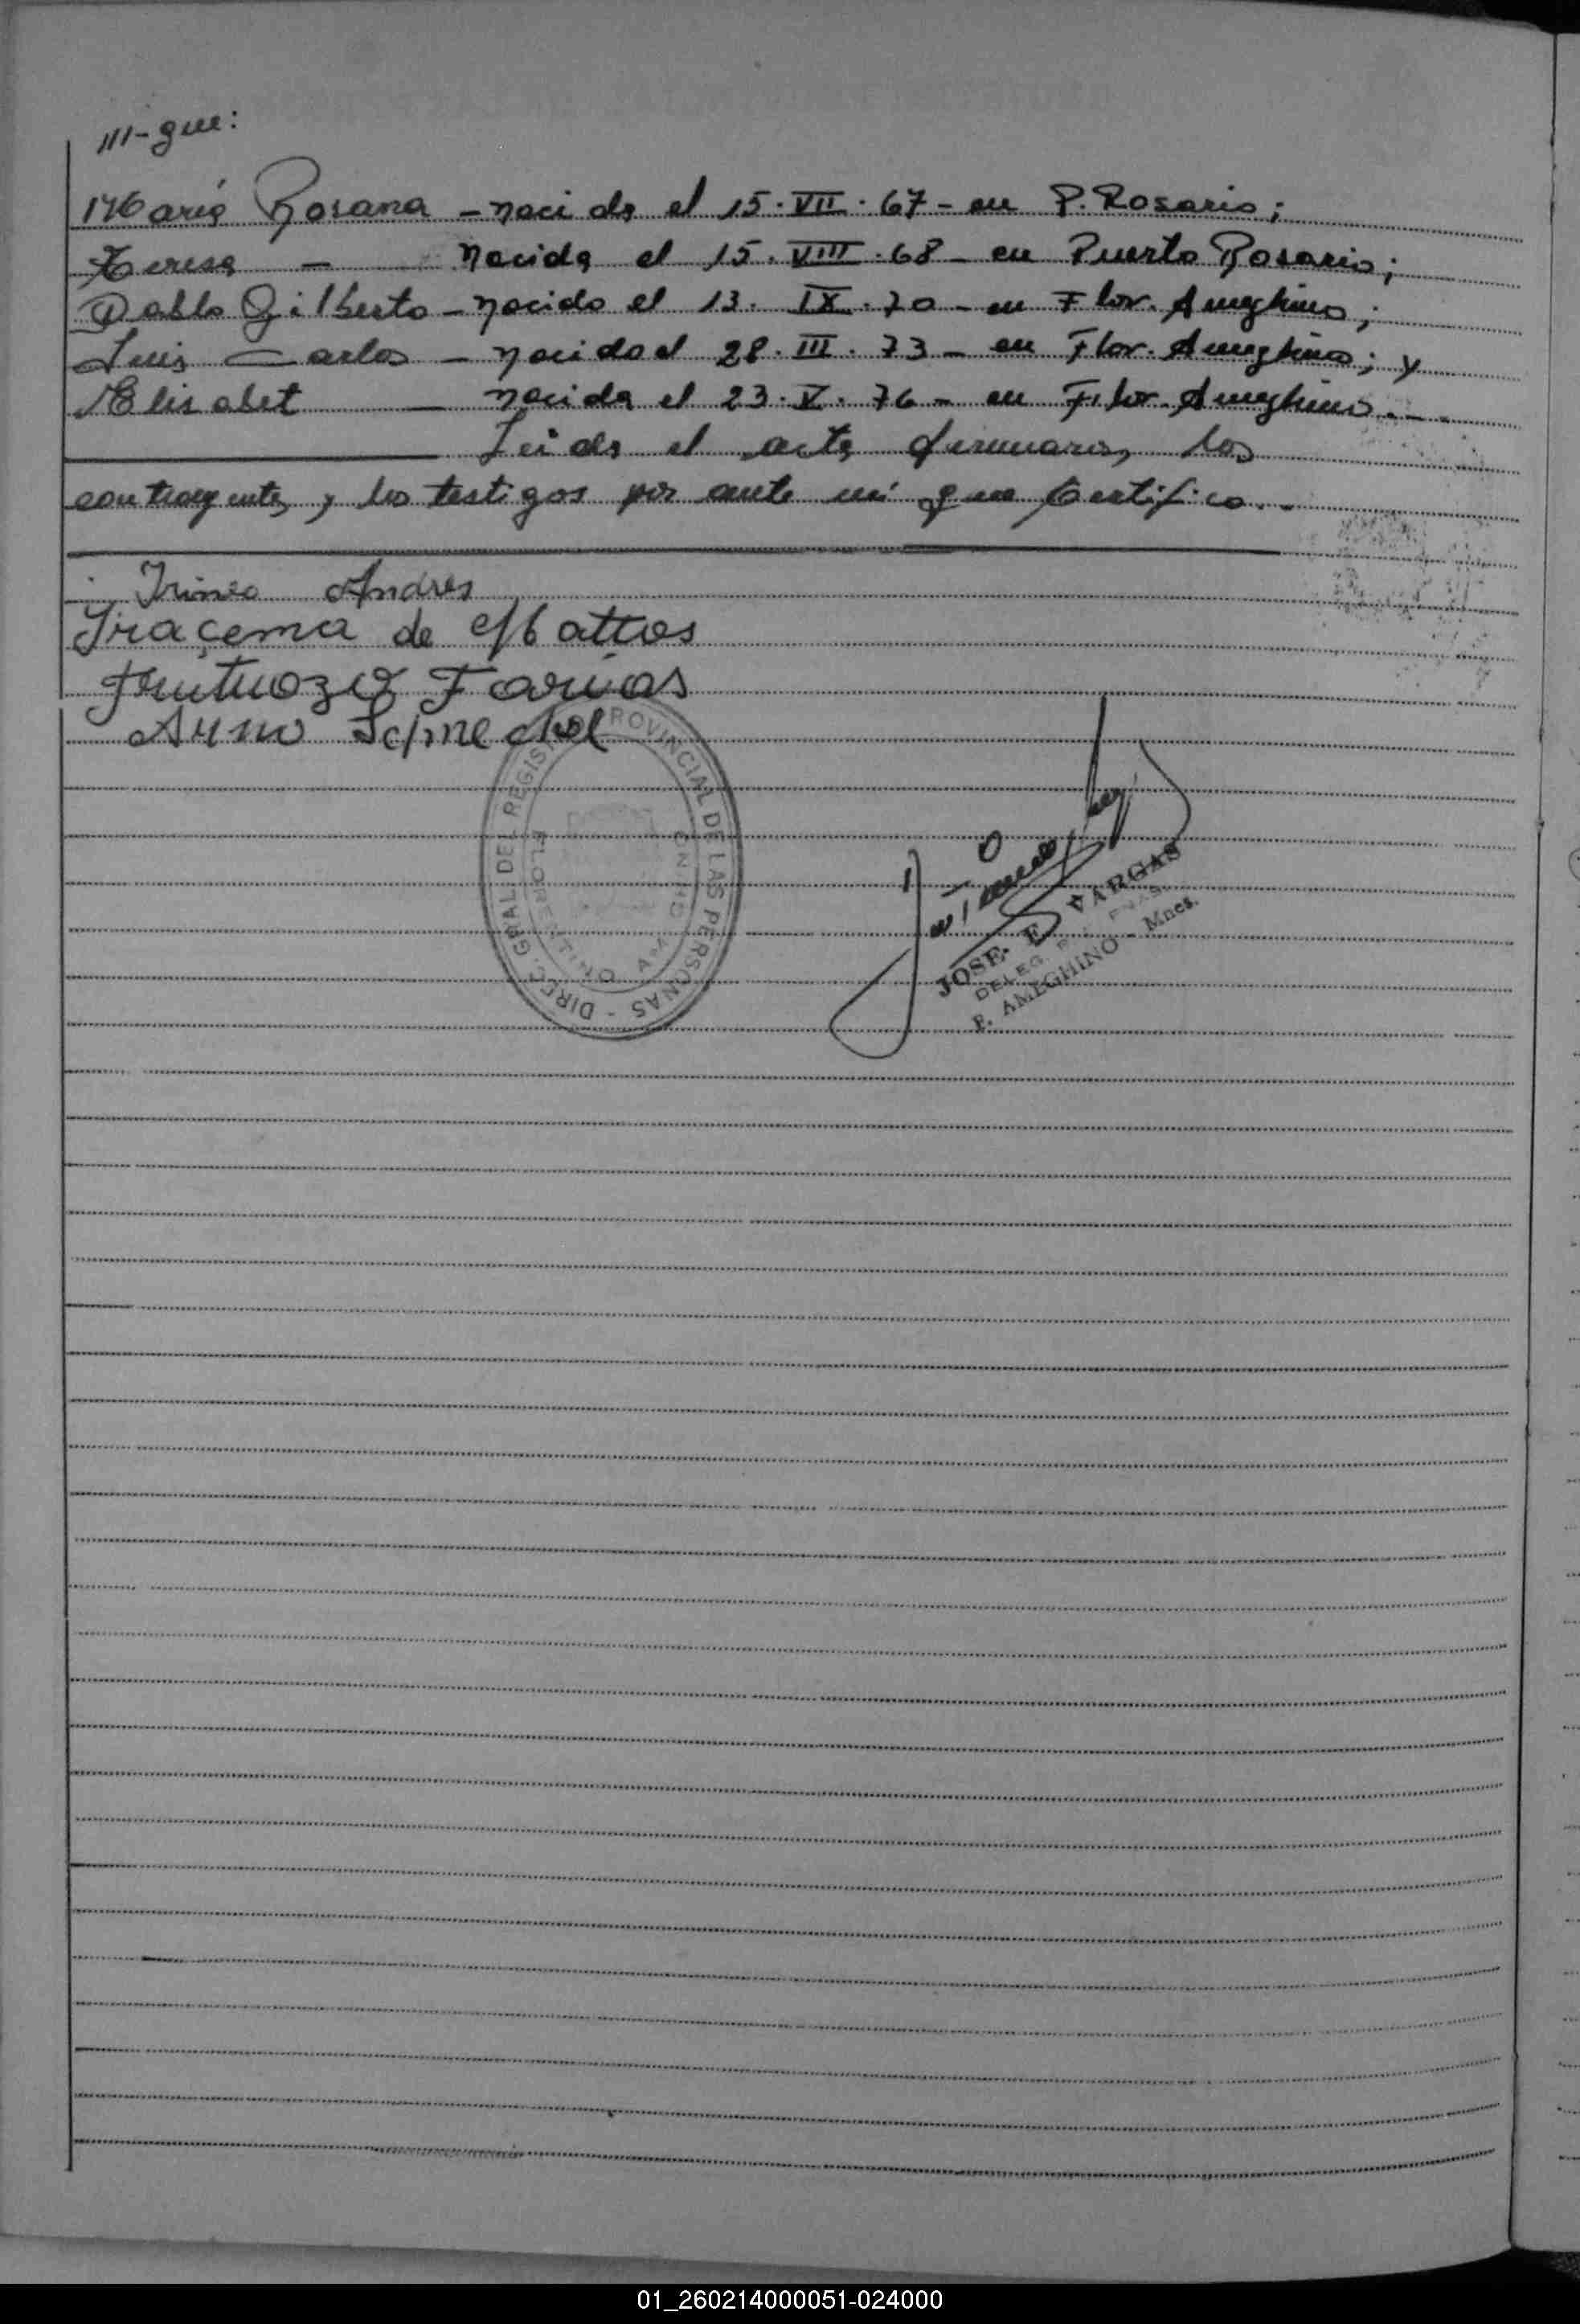 ///-gue:
María Rosana - nacida el 15.VII.67 - en P. Rosario;
Teresa - nacida el 15.VIII.68 - en Puerto Rosario;
Pablo Gilberto - nacido el 13.IX.70 - en Flor. Ameghino;
Luis Carlos - nacido el 28.III.73 - en Flor. Ameghino; y
Elisabet nacida el 23.V.76 - en Flor. Ameghino.-
Leida el acta firmaron, los
contrayentes, y los testigos por ante mí que certifico.-
Irineo Andres
Iraçema de Mattos
Frutuozo Farias
Arno Schmechel
DIREC. GRAL. DEL REGISTRO PROVINCIAL DE LAS PERSONAS -
FLORENTINO AMEGHINO
JOSE E. VARGAS
DELEG. R. P. PNAS.
F. AMEGHINO - Mnes.
01_260214000051-024000